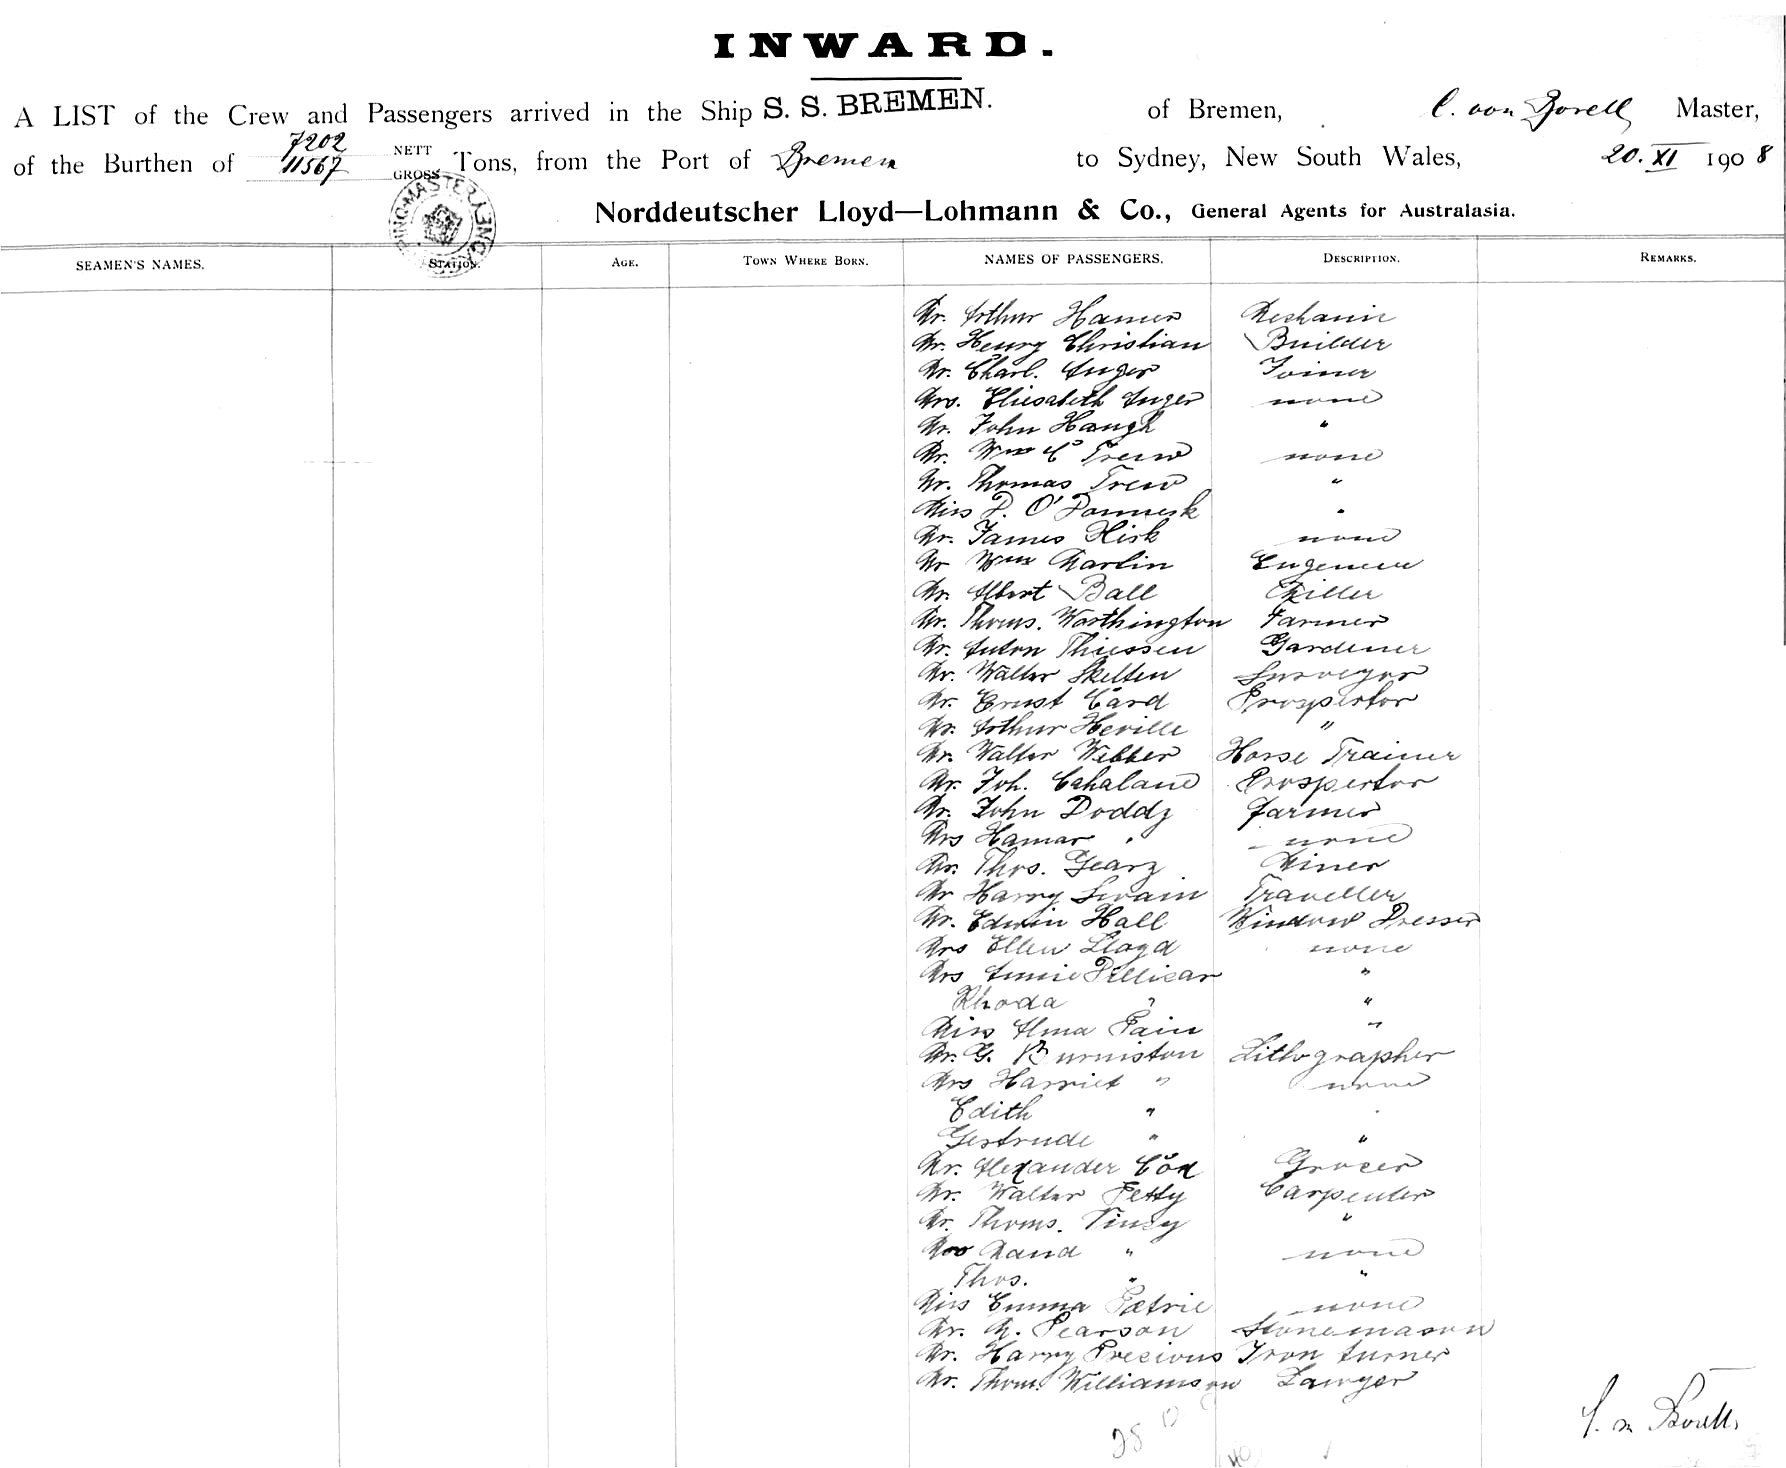 INWARD.
A LIST of the Crew and Passengers arrived in the Ship S. S. BREMEN. of Bremen, C. von Borell Master,
7202
of the Burthen of 11567 NETT GROSS Tons, from the Port of Bremen to Sydney, New South Wales, 20. XI 1908
Norddeutscher Lloyd—Lohmann & Co., General Agents for Australasia.
SEAMEN'S NAMES. STATION. AGE. TOWN WHERE BORN. NAMES OF PASSENGERS. DESCRIPTION. REMARKS.
Mr. Arthur Hamer Mechanic
Mr. Henry Christian Builder
Mr. Charl. Auger Joiner
Mrs. Eliesabeth Auger none
Mr. John Haugh "
Mr. Wm C Trew none
Mr. Thomas Trew "
Miss P. O' "
Mr. James Kisk none
Mr Wm Martin Engeneer
Mr. Albert Ball Miller
Mr. Thoms. Worthington Farmer
Mr. Anton Thiessen Gardener
Mr. Walter Skelten Surveyor
Mr. Ernst Card Prospector
Mr. Arthur Neville "
Mr. Walter Webber Horse Trainer
Mr. Joh. Cahalane Prospector
Mr. John Doddy farmer
Mrs Hamar none
Mr. Thos. Geary Miner
Mr Harry Swain Traveller
Mr. Edwin Hall Window Dresser
Mrs Ellen Lloyd none
Mrs Annie Pellicar "
Rhoda " "
Miss Alma Pain "
Mr. G. Burniston Lithographer
Mrs Harriet " none
Edith "
Gertrude " "
Mr. Alexander Cox Grocer
Mr. Walter Petty Carpenter
Mr. Thoms. Viney "
Mrs Maud " none
Thos. " "
Miss Emma Petrie none
Mr. M. Pearson Stonemason
Mr. Harry Precious Iron turner
Mr. Thom. Williamson Lawyer
C. v. Borell.
28
40